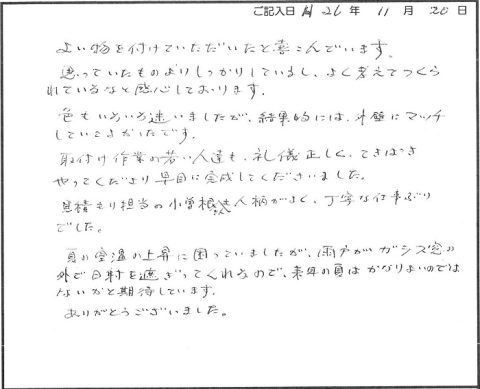 ご記入日 H 26 年 11 月 20 日
よい物を付けていただいたと喜こんでいます。
思っていたものよりしっかりしているし、よく考えてつくら
れているなと感心しております。
色もいろいろ迷いましたが、結果的には、外壁にマッチ
していてよかったです。
取付け作業の若い人達も、礼儀正しく、てきぱき
やってくださり早目に完成してくださいました。
見積もり担当の小曽根さんも人柄がよく、丁寧な仕事ぶり
でした。
夏の室温の上昇に困っていましたが、雨戸がガラス窓の
外で日射を遮ぎってくれるので、来年の夏はかなりよいのでは
ないかと期待しています。
ありがとうございました。